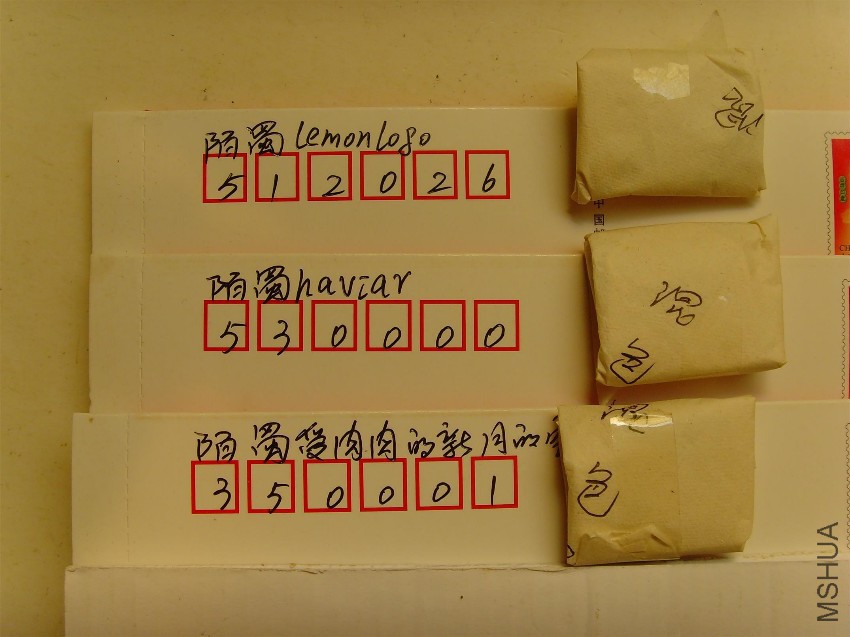 陌蜀lemonlogo
512026
中国邮
陌蜀haviar
530000
混
包
陌蜀爱肉肉的新月的
350001
混
包
MSHUA